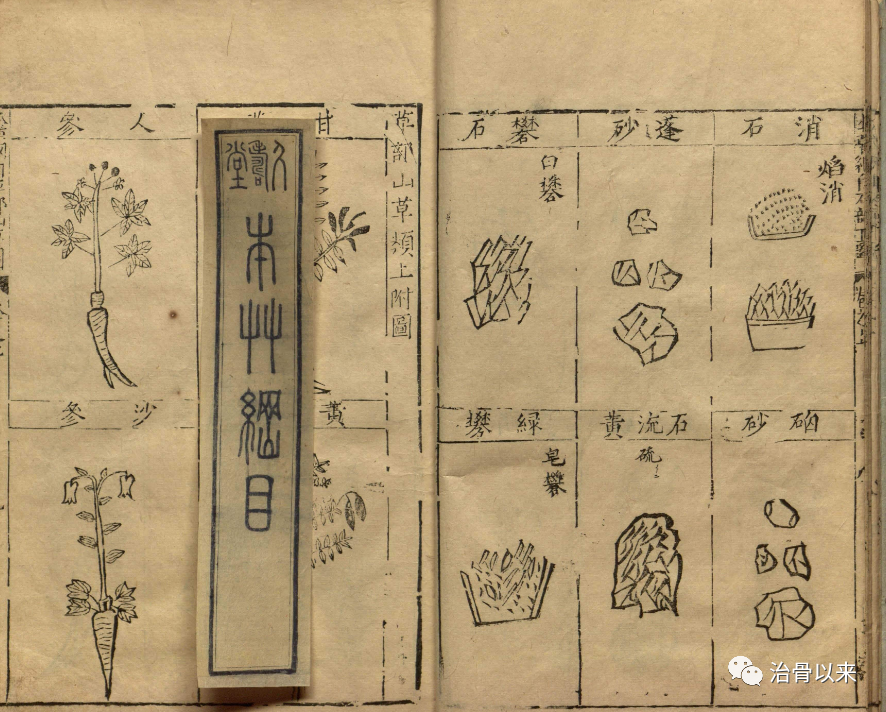 消石
焰消
蓬砂
礬石
白礬
硇砂
石流黄
硫
綠礬
皂礬
草部山草類上附圖
甘
人參
黃
沙參
本艸綱目
治骨以来